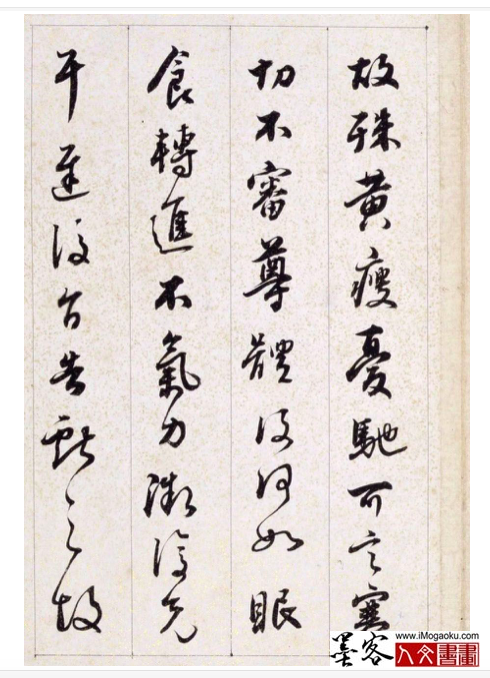 故殊黄瘦憂馳可言寒
切不審尊體復何如眠
食轉進不氣力漸復充
耳遲復旨告獻之故
墨客
www.iMogaoku.com
人文書畫